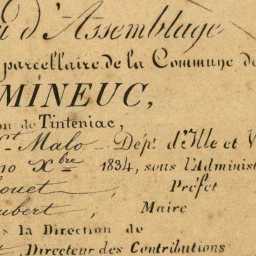 d'Assemblage
parcellaire de la Commune de
MINEUC,
on de Tinteniac,
St Malo Dépt d'Ille et V
no Xbre 1834, sous l'Administ
ouet, Préfet
ubert, Maire
s la Direction de
, Directeur des Contributions